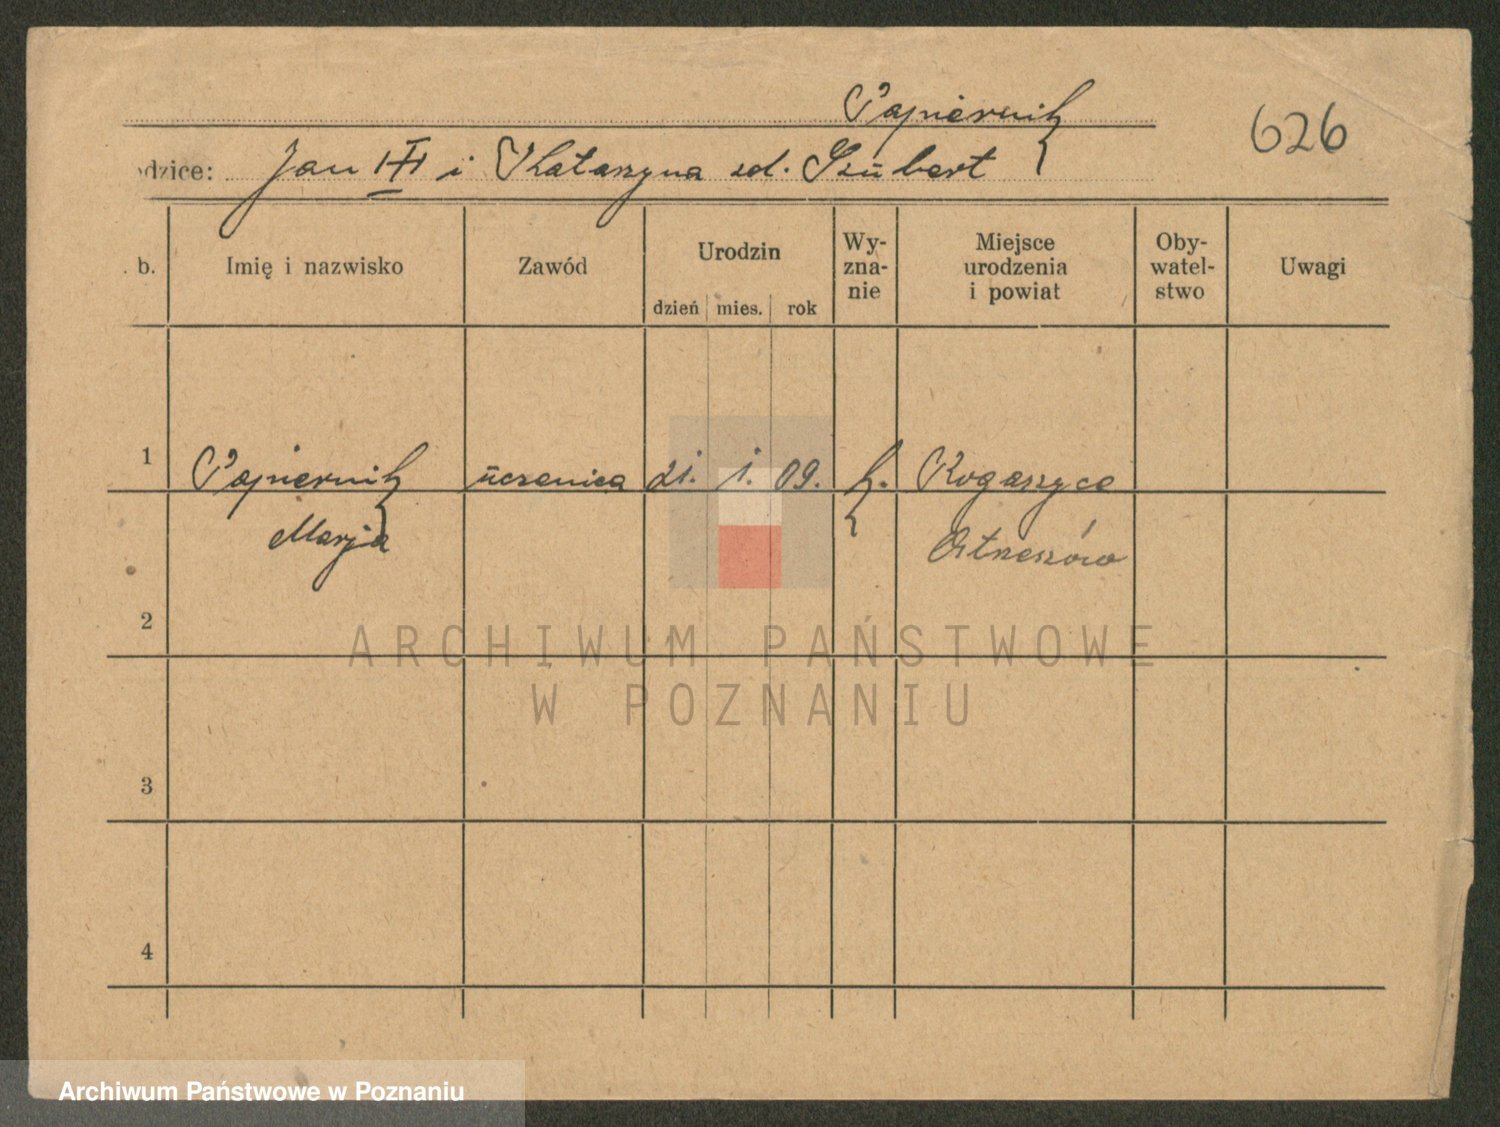 Papiernik
626
odzice: Jan III i Katarzyna zd. Szubert
. b.
Imię i nazwisko
Zawód
Urodzin
dzień mies. rok
Wy-
zna-
nie
Miejsce
urodzenia
i powiat
Oby-
watel-
stwo
Uwagi
1 Papiernik uczenica 21. 1. 09. k. Rogaszyce
Marja Ostrzeszów
2
3
4
ARCHIWUM PAŃSTWOWE
W POZNANIU
Archiwum Państwowe w Poznaniu